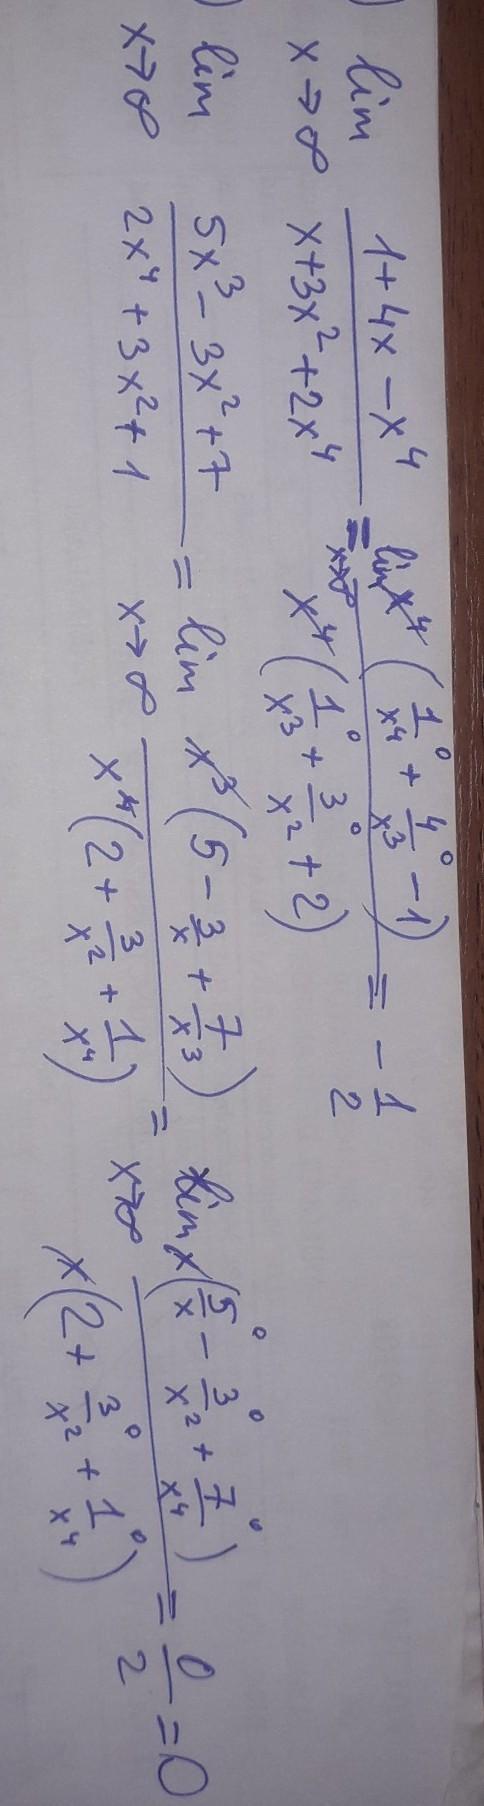 ) lim x→∞ (1+4x−x⁴)/(x+3x²+2x⁴) = lim x→∞ x⁴(1/x⁴⁰ + 4/x³⁰ − 1)/x⁴(1/x³⁰ + 3/x²⁰ + 2) = −1/2
) lim x→∞ (5x³−3x²+7)/(2x⁴+3x²+1) = lim x→∞ x³(5 − 3/x + 7/x³)/x⁴(2 + 3/x² + 1/x⁴) = lim x→∞ x(5/x⁰ − 3/x²⁰ + 7/x⁴⁰)/x(2 + 3/x²⁰ + 1/x⁴⁰) = 0/2 = 0